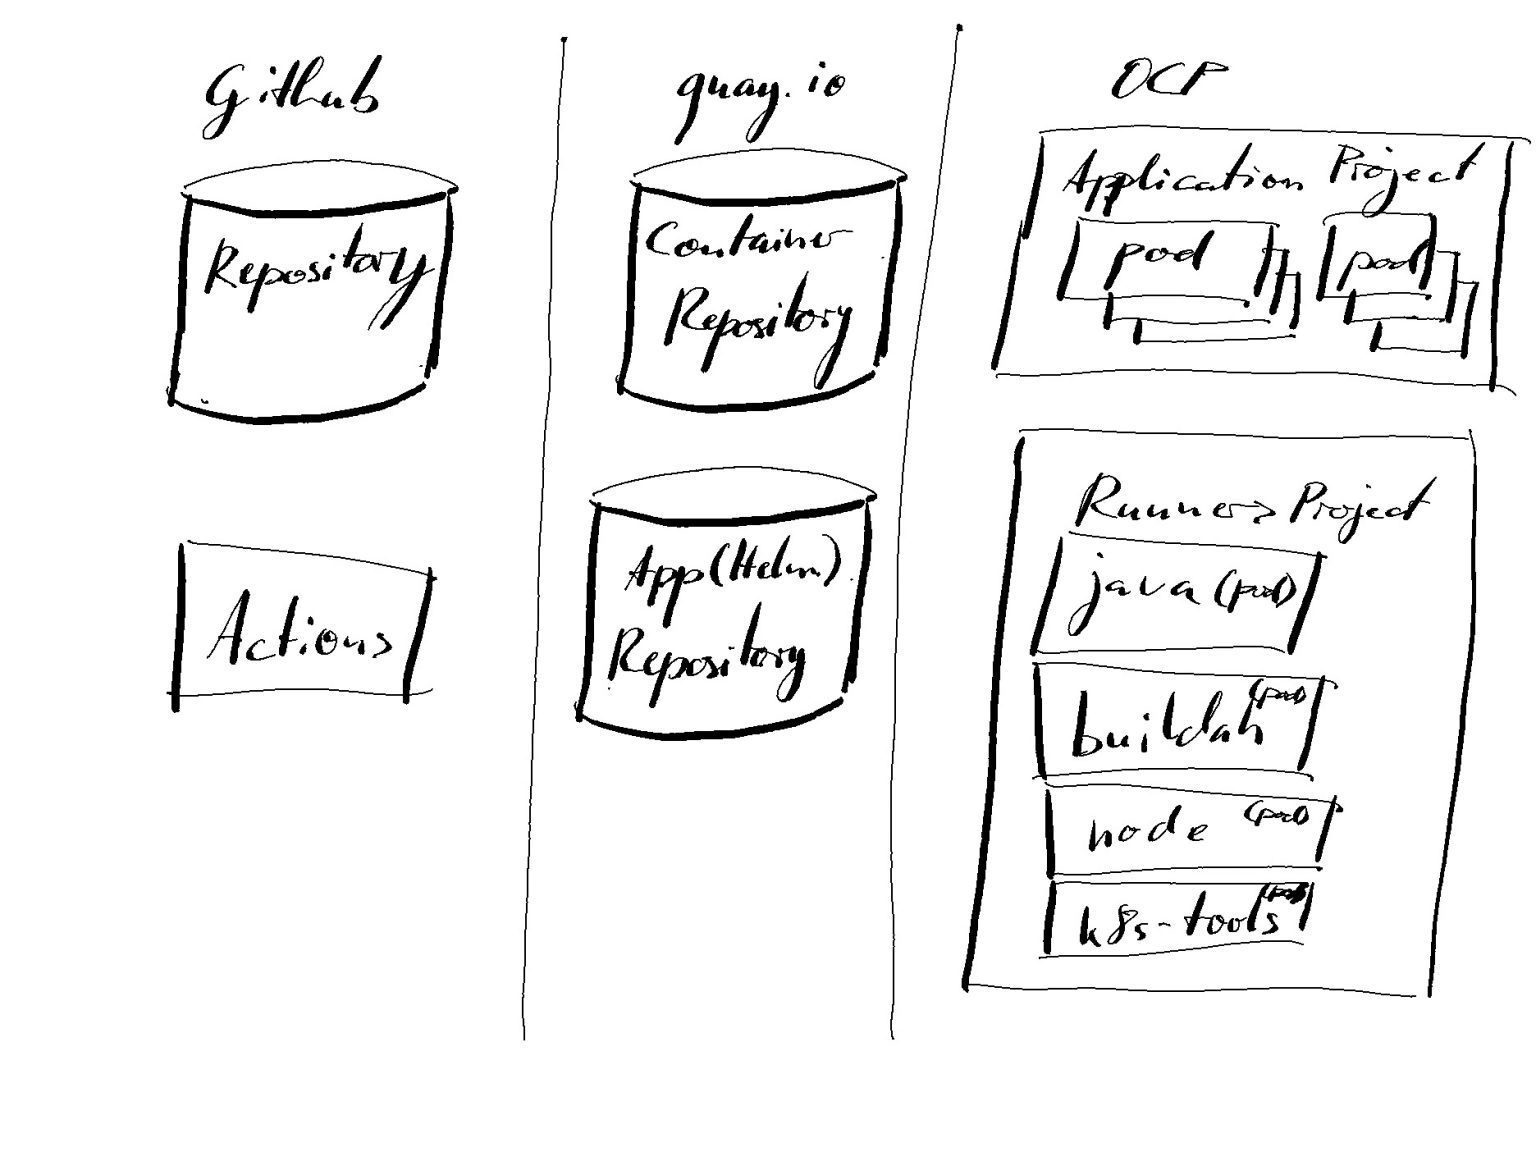 Github
Repository
Actions
quay.io
Container
Repository
App (Helm)
Repository
OCP
Application Project
pod
pod
Runners Project
java (pod)
buildah (pod)
node (pod)
k8s-tools (pod)